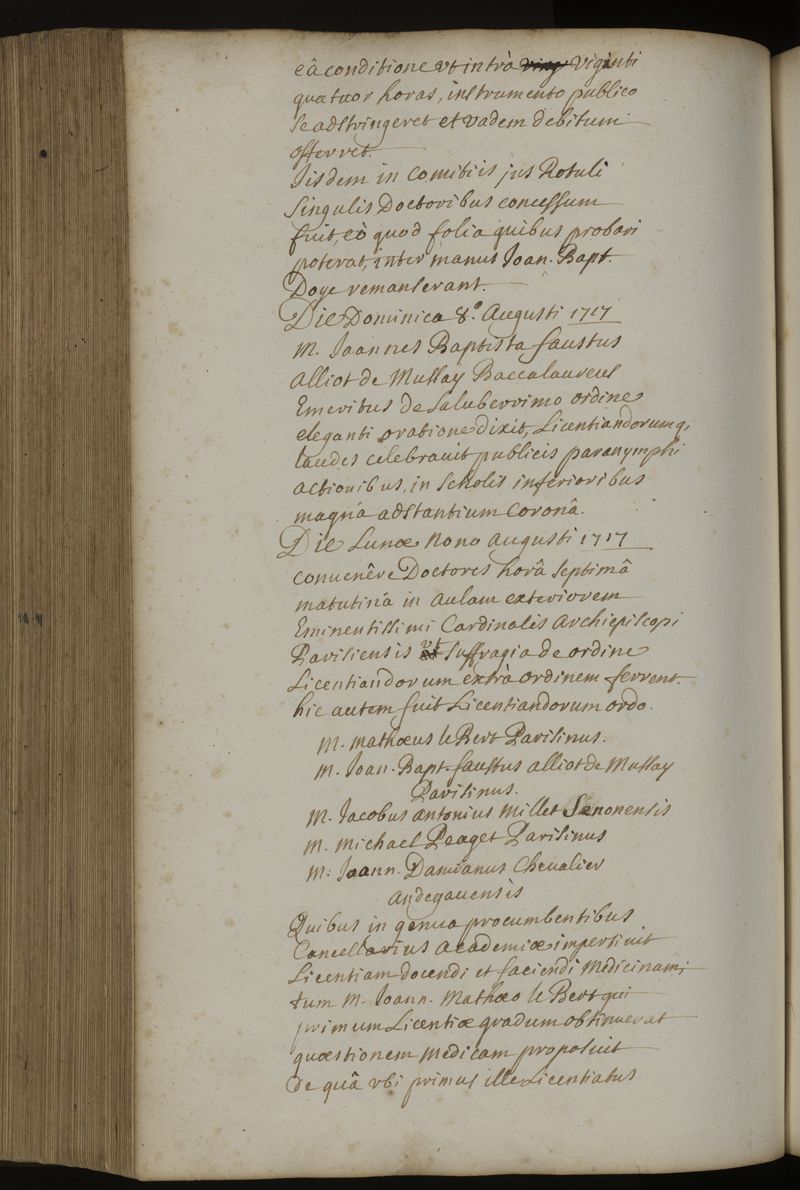 eâ conditione vt intrà ving viginti
quatuor horas, instrumento publico
se adstringeret et vadem debitum
offerret.
Iisdem in Comitiis jus Rotuli
singulis Doctoribus concessum
fuit, eò quod folia quibus probari
poterat, inter manus Joan. Bapt.
Doye remanserant.
Die Dominica 8.ª Augusti 1717
M. Joannes Baptista faustus
Alliot de Mussay Baccalaureus
Emeritus de saluberrimo ordine
eleganti oratione dixit, Licentiandorumq;
laudes celebravit publicis paranymphi
actionibus, in scholis inferioribus
magnâ adstantium Coronâ.
Die Lunæ Nono Augusti 1717
convenêre Doctores horâ septimâ
matutinâ in Aulam exteriorem
Eminentissimi Cardinalis Archiepiscopi
Parisiensis vt suffragia de ordine
Licentiandorum extrà ordinem ferrent.
hic autem fuit Licentiandorum ordo.
M. Mathæus le Bert Parisinus.
M. Joan. Bapt. faustus alliot de Mussay
Parisinus.
M. Jacobus Antonius Millet Senonensis
M. Michael Peaget Parisinus
M: Joann. Damianus Chevalier
Andegavensis
Quibus in genua procumbentibus
Cancellarius Academiæ impertivit
Licentiam docendi et faciendi Medicinam;
tum M. Joann. Mathæo le Bert qui
primum Licentiæ gradum obtinuerat
quæstionem Medicam proposuit
de quâ vbi primus ille Licentiatus